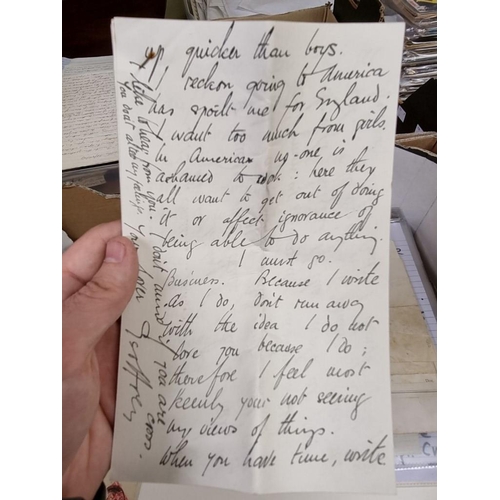 up quicker than boys.
I reckon going to America
has spoilt me for England.
I want too much from girls.
In American no-one is
ashamed to cook: here they
all want to get out of doing
it or affect ignorance of
being able to do anything.
I must go.
Business. Because I write
as I do, don't run away
with the idea I do not
love you because I do;
therefore I feel most
keenly your not seeing
my views of things.
When you have time, write
I like to hear from you. I don't mind if you are cross.
You don't alter my feelings. Your lover Geoffrey